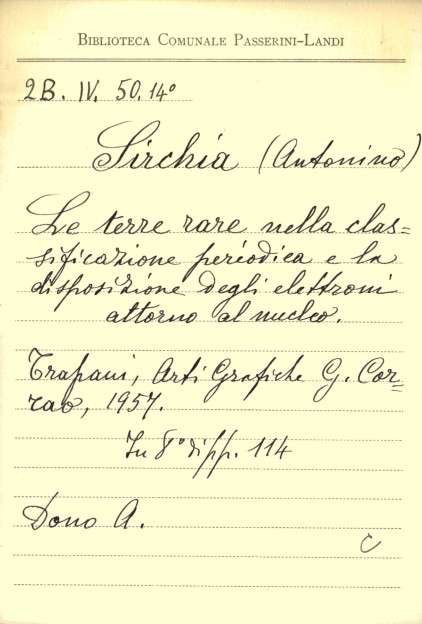 BIBLIOTECA COMUNALE PASSERINI-LANDI
2B. IV. 50. 14°
Sirchia (Antonino)
Le terre rare nella clas=
sificazione periodica e la
disposizione degli elettroni
attorno al nucleo.
Trapani, Arti Grafiche G. Cor=
rao, 1957.
In 8° di pp. 114
Dono A.
C